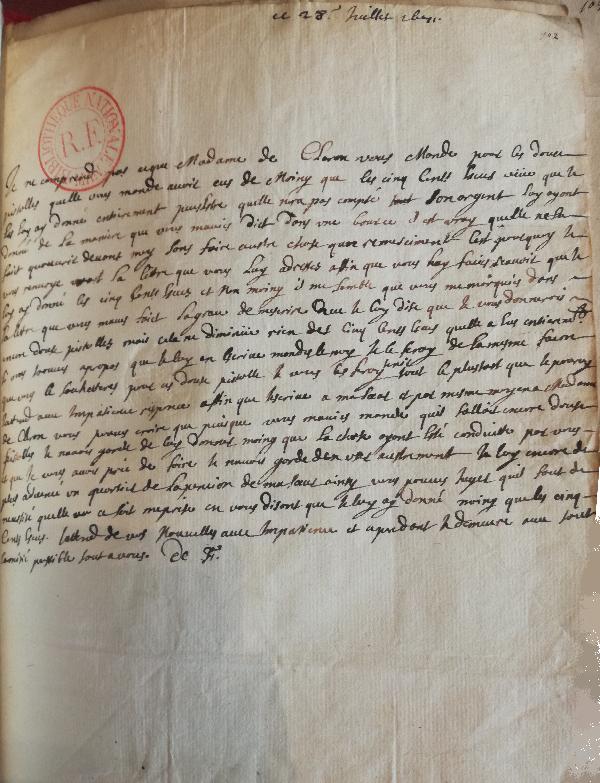 ce 28. Juillet
102
BIBLIOTHEQUE NATIONALE
R.F.
Je ne comprend pas ce que Madame de Cleron vous Mande pour les douse
pistolles quelle vous mande avoir eus de Moins que les cinq Cents Escus que je
les luy ay donné entierement peutestre quelle nora pas compté tout son argent luy ayant
donné de la maniere que vous mavies dict dans une bource il est vray quelle ne la
fait quouvrir devant moy sans faire austre chose quun remerciment Cest pourquoy je
vous renvoye la letre que vous luy adresses affin que vous luy faire scavoir que je
luy ay donné les cinq Cents Escus et non moins il me semble que vous me marqués dans
la letre que vous maves fait la grace de mescrire Que je luy dise que je vous donnerois
douse pistolles mais cela ne diminüe rien des Cinq Cents Escus quelle a eus entierem.t
Si vous trouves apropos que je luy en Escrive mandes le moy je le feray de la mesme facon
que vous le souhetteres pour ces douse pistolle je vous les feray tenir tout le plustost que je pourray
Jattend aux Impatience reponce affin que jescrive a ma sœur et par mesme moyen a Madame
de Cleron vous pouves croire que puisque vous mavies mandé quil falloit encore douse
pistolles je navois garde de luy donner moing que la chose ayant esté conduitte par vous
et que je vous avois prié de faire je navois garde den user austrement Je luy encore de
plus advancé un quartier de la pension de ma sœur ainsy vous pouves juger quil faut de
necessité quelle se soit meprise en vous disant que je luy ay donné moing que les cinq
Cents Escus. Jattend de vos Nouvelles avec Impatience et cependant je demeure avec toute
lamitié possible tout a vous. de